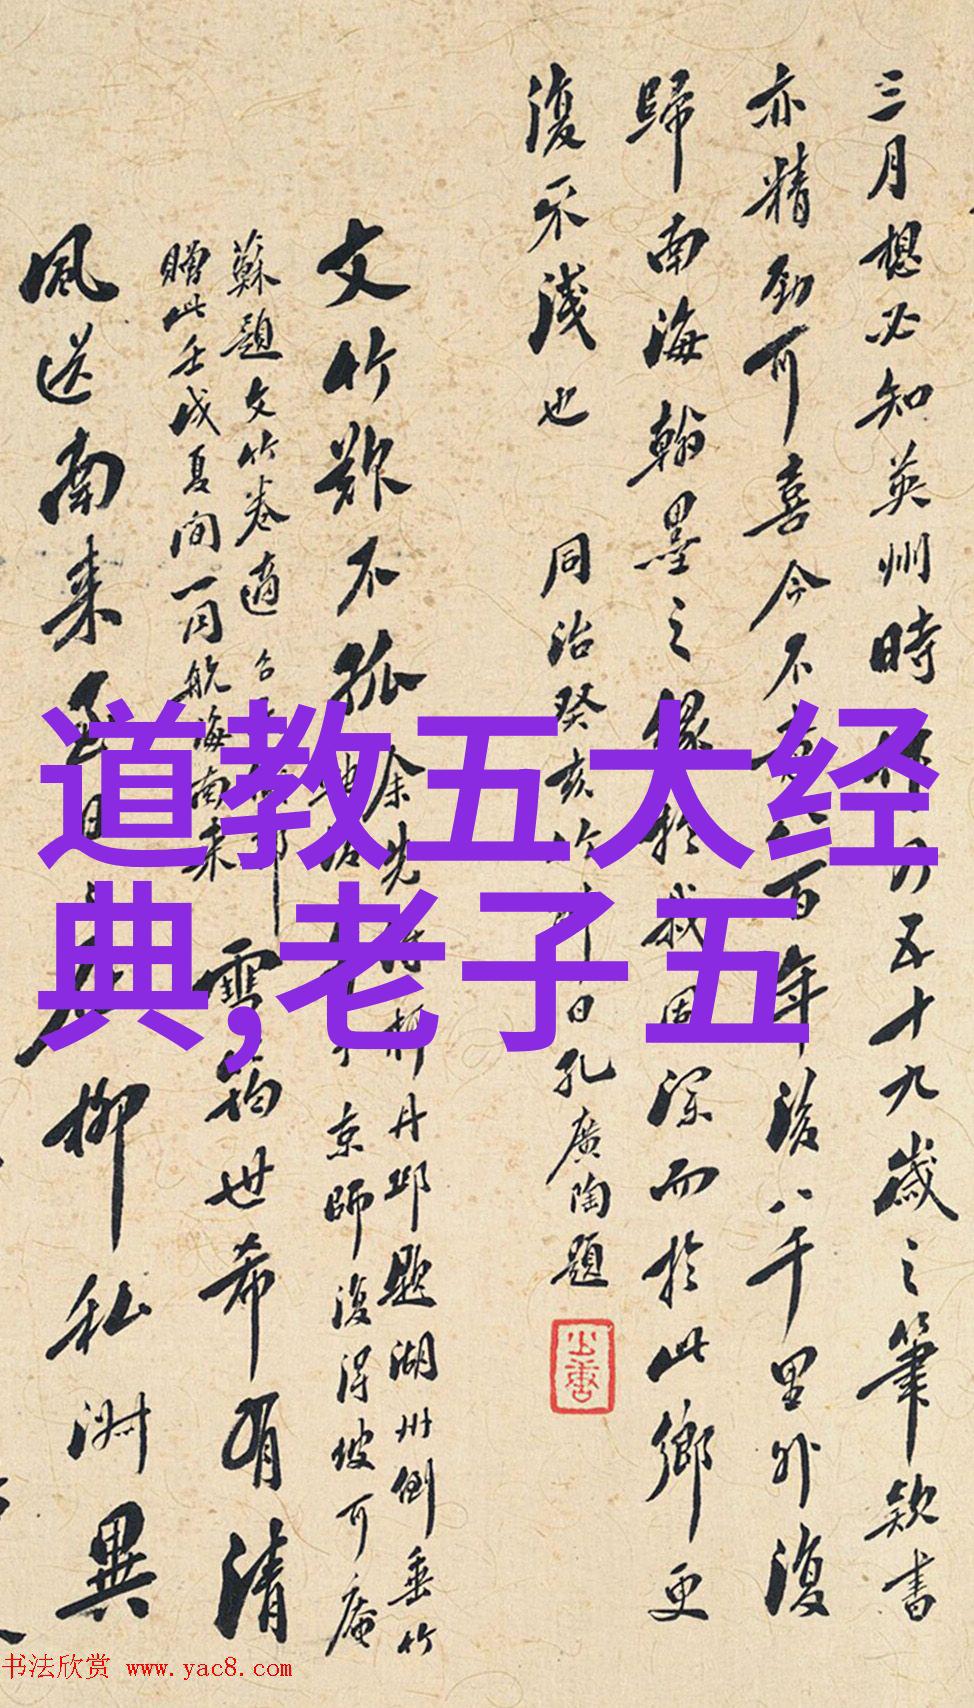 三月想必知英州時作乃五十九歲之筆款書
亦精勁可喜今不意八百年後八千里外復
歸南海翰墨之緣於我固深而於此鄉更
復不淺也
同治癸亥 日孔廣陶題
文竹歎不孤
余先得柯丹邱題湖州倒垂竹
京師復得坡可庵
蘇題文竹卷適
贈此壬戌夏間一同航海南來
雪筠世希有清
風送南來 柳私淑異
道教五大经
典,老子五
书法欣赏 www.yac8.com